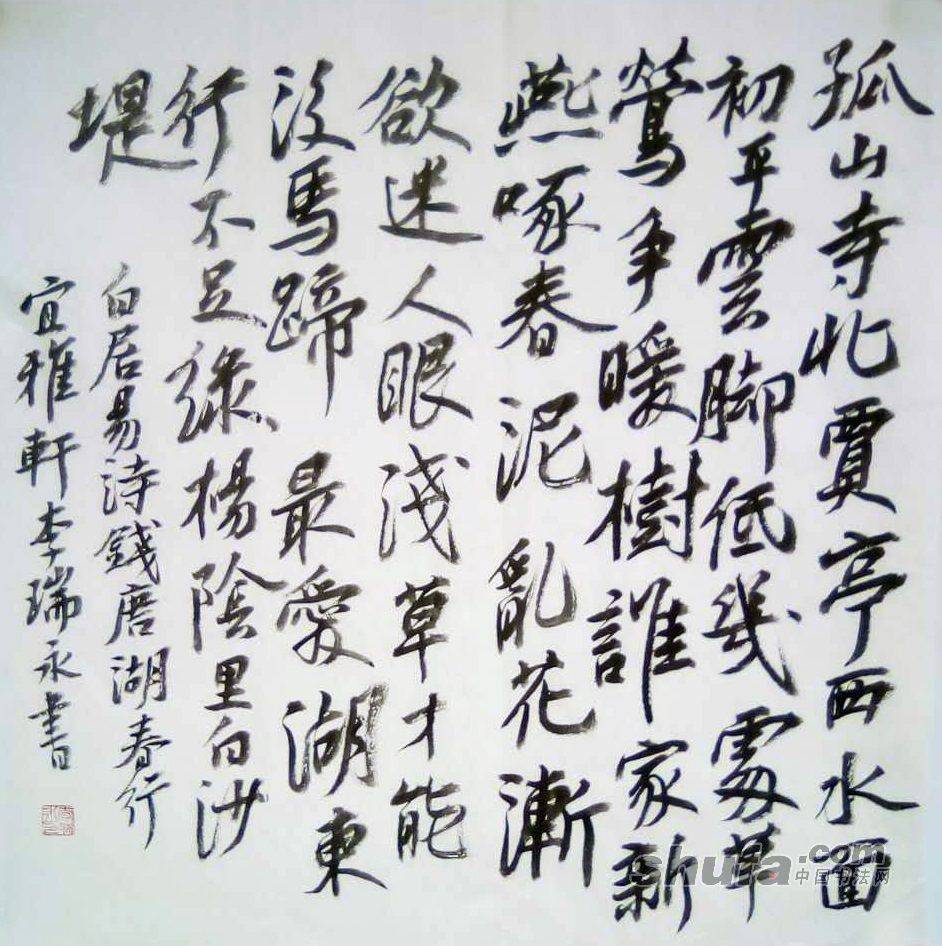 孤山寺北賈亭西水面
初平雲脚低幾處草
鶯争暖樹誰家新
燕啄春泥亂花漸
欲迷人眼浅草才能
没馬蹄最愛湖東
行不足緑楊陰里白沙
堤
白居易詩錢唐湖春行
宜雅軒李瑞永書
shufa.com
中国书法网